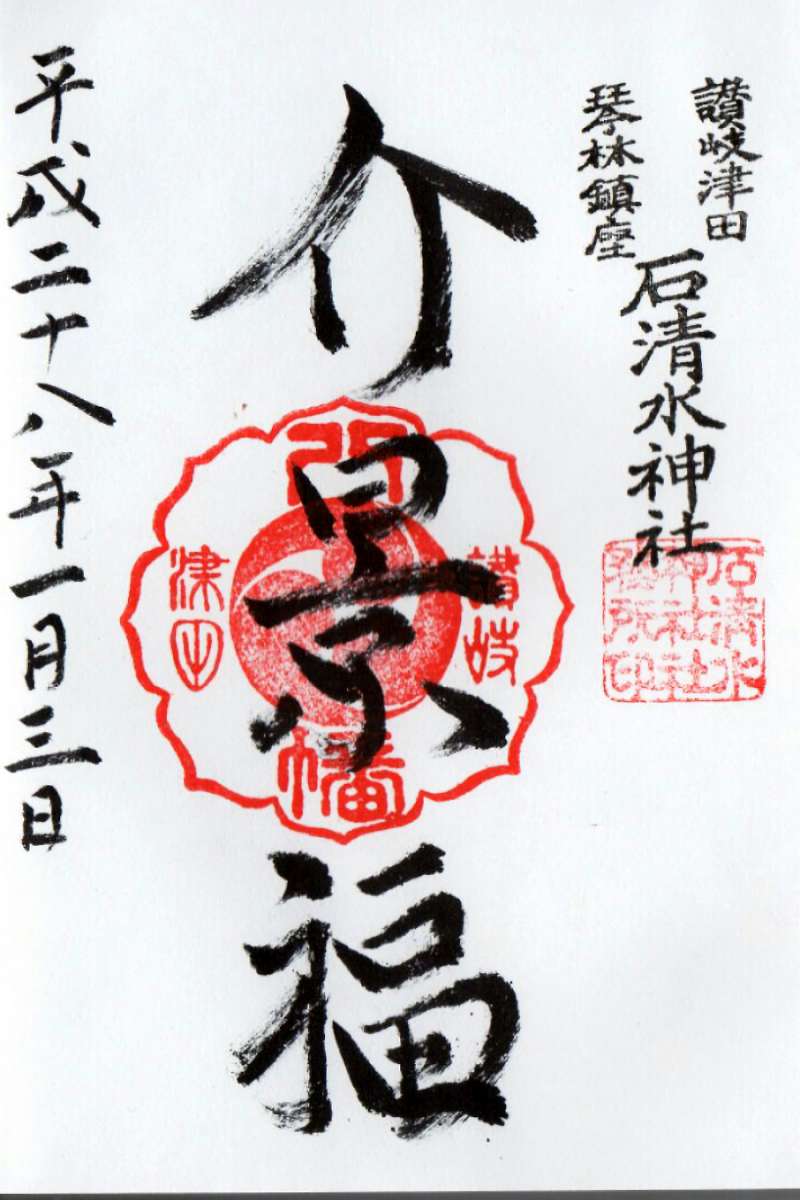 讃岐津田
琴林鎮座
石清水神社
介景福
平成二十八年一月三日
八幡
讃岐
津田
石清水